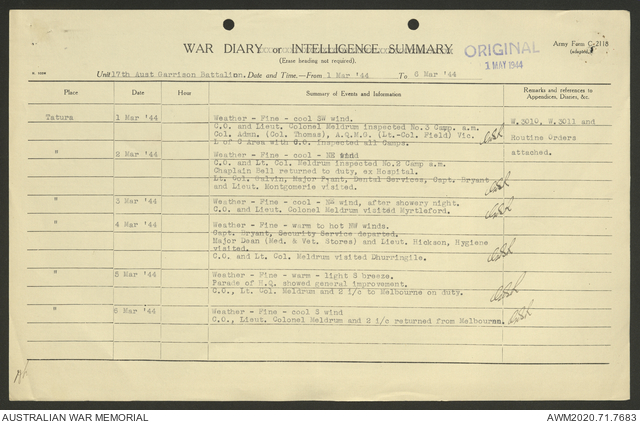 WAR DIARY or INTELLIGENCE SUMMARY
(Erase heading not required).
ORIGINAL
1 MAY 1944
Army Form C.2118
(adapted)
Unit 17th Aust Garrison Battalion. Date and Time.—From 1 Mar '44 To 6 Mar '44
Place Date Hour Summary of Events and Information Remarks and references to Appendices, Diaries, &c.
Tatura 1 Mar '44 Weather - Fine - cool SW wind. W.3010, W.3011 and
C.O. and Lieut. Colonel Meldrum inspected No.3 Camp. a.m.
Col. Admn. (Col. Thomas), A.Q.M.G. (Lt.-Col. Field) Vic. Routine Orders
L of C Area with C.O. inspected all Camps.
" 2 Mar '44 Weather - Fine - cool - NE wind attached.
C.O. and Lt. Col Meldrum inspected No.2 Camp a.m.
Chaplain Bell returned to duty, ex Hospital.
Lt. Col. Galvin, Major Plant, Dental Services, Capt. Bryant
and Lieut. Montgomerie visited.
" 3 Mar '44 Weather - Fine - cool - wind, after showery night.
C.O. and Lieut. Colonel Meldrum visited Myrtleford.
" 4 Mar '44 Weather - Fine - warm to hot NW winds.
Capt. Bryant, Security Service departed.
Major Dean (Med. & Vet. Stores) and Lieut. Hickson, Hygiene
visited.
C.O. and Lt. Col. Meldrum visited Dhurringile.
" 5 Mar '44 Weather - Fine - warm - light S breeze.
Parade of H.Q. showed general improvement.
C.O., Lt. Col. Meldrum and 2 i/c to Melbourne on duty.
" 6 Mar '44 Weather - Fine - cool S wind
C.O., Lieut. Colonel Meldrum and 2 i/c returned from Melbourne.
AUSTRALIAN WAR MEMORIAL AWM2020.71.7683